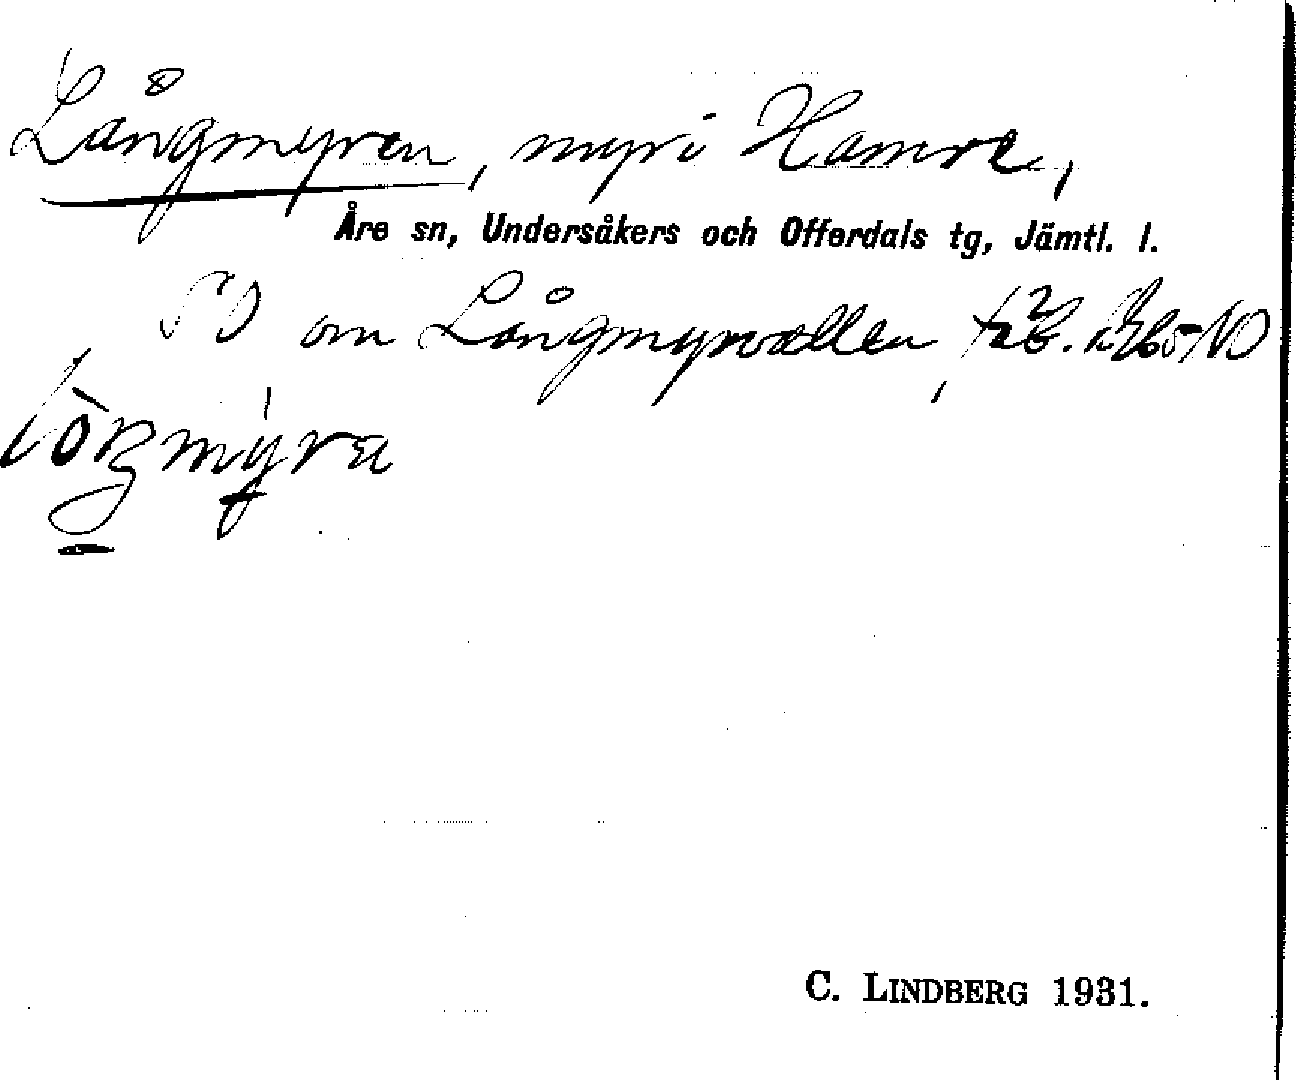 Långmyren, myr i Hamre,
Åre sn, Undersåkers och Offerdals tg, Jämtl. l.
SO om Långmyrvallen,
C. LINDBERG 1931.